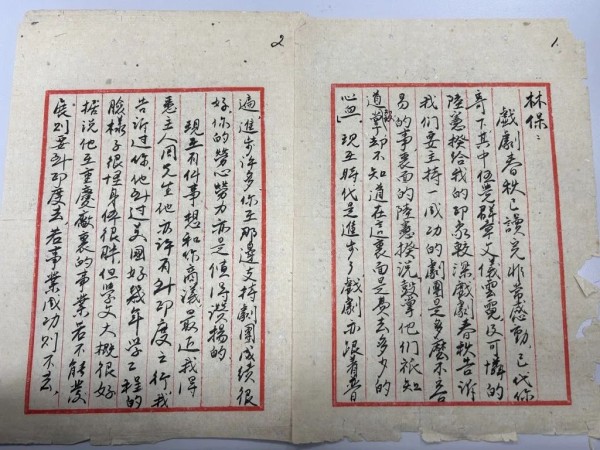 1.
林保：
戲劇春秋已讀完非常感動已代你
寄下其中伍群章文儀雲霓及可憐的
陸憲揆給我的印象較深戲劇春秋告訴
我們要主持一成功的劇團是多麼不容
易的事裏面的陸憲揆說鼓掌他們祇知
道鼓掌却不知道在這裏面是費去多少的
心血」現在時代是進步了戲劇亦跟着普
2
遍進步許多你在那邊支持劇團成績很
好你的勞心勞力亦是值得讚揚的
現在有件事想和你商議最近我得
悉主人周先生他亦许有到印度之行我
告訴过你他到过美國好幾年學工程的
臉樣子很身体很胖但英文大概很好
据说他在重慶廠裏的事業若不能發
展则要到印度去，若事業成功则不去，